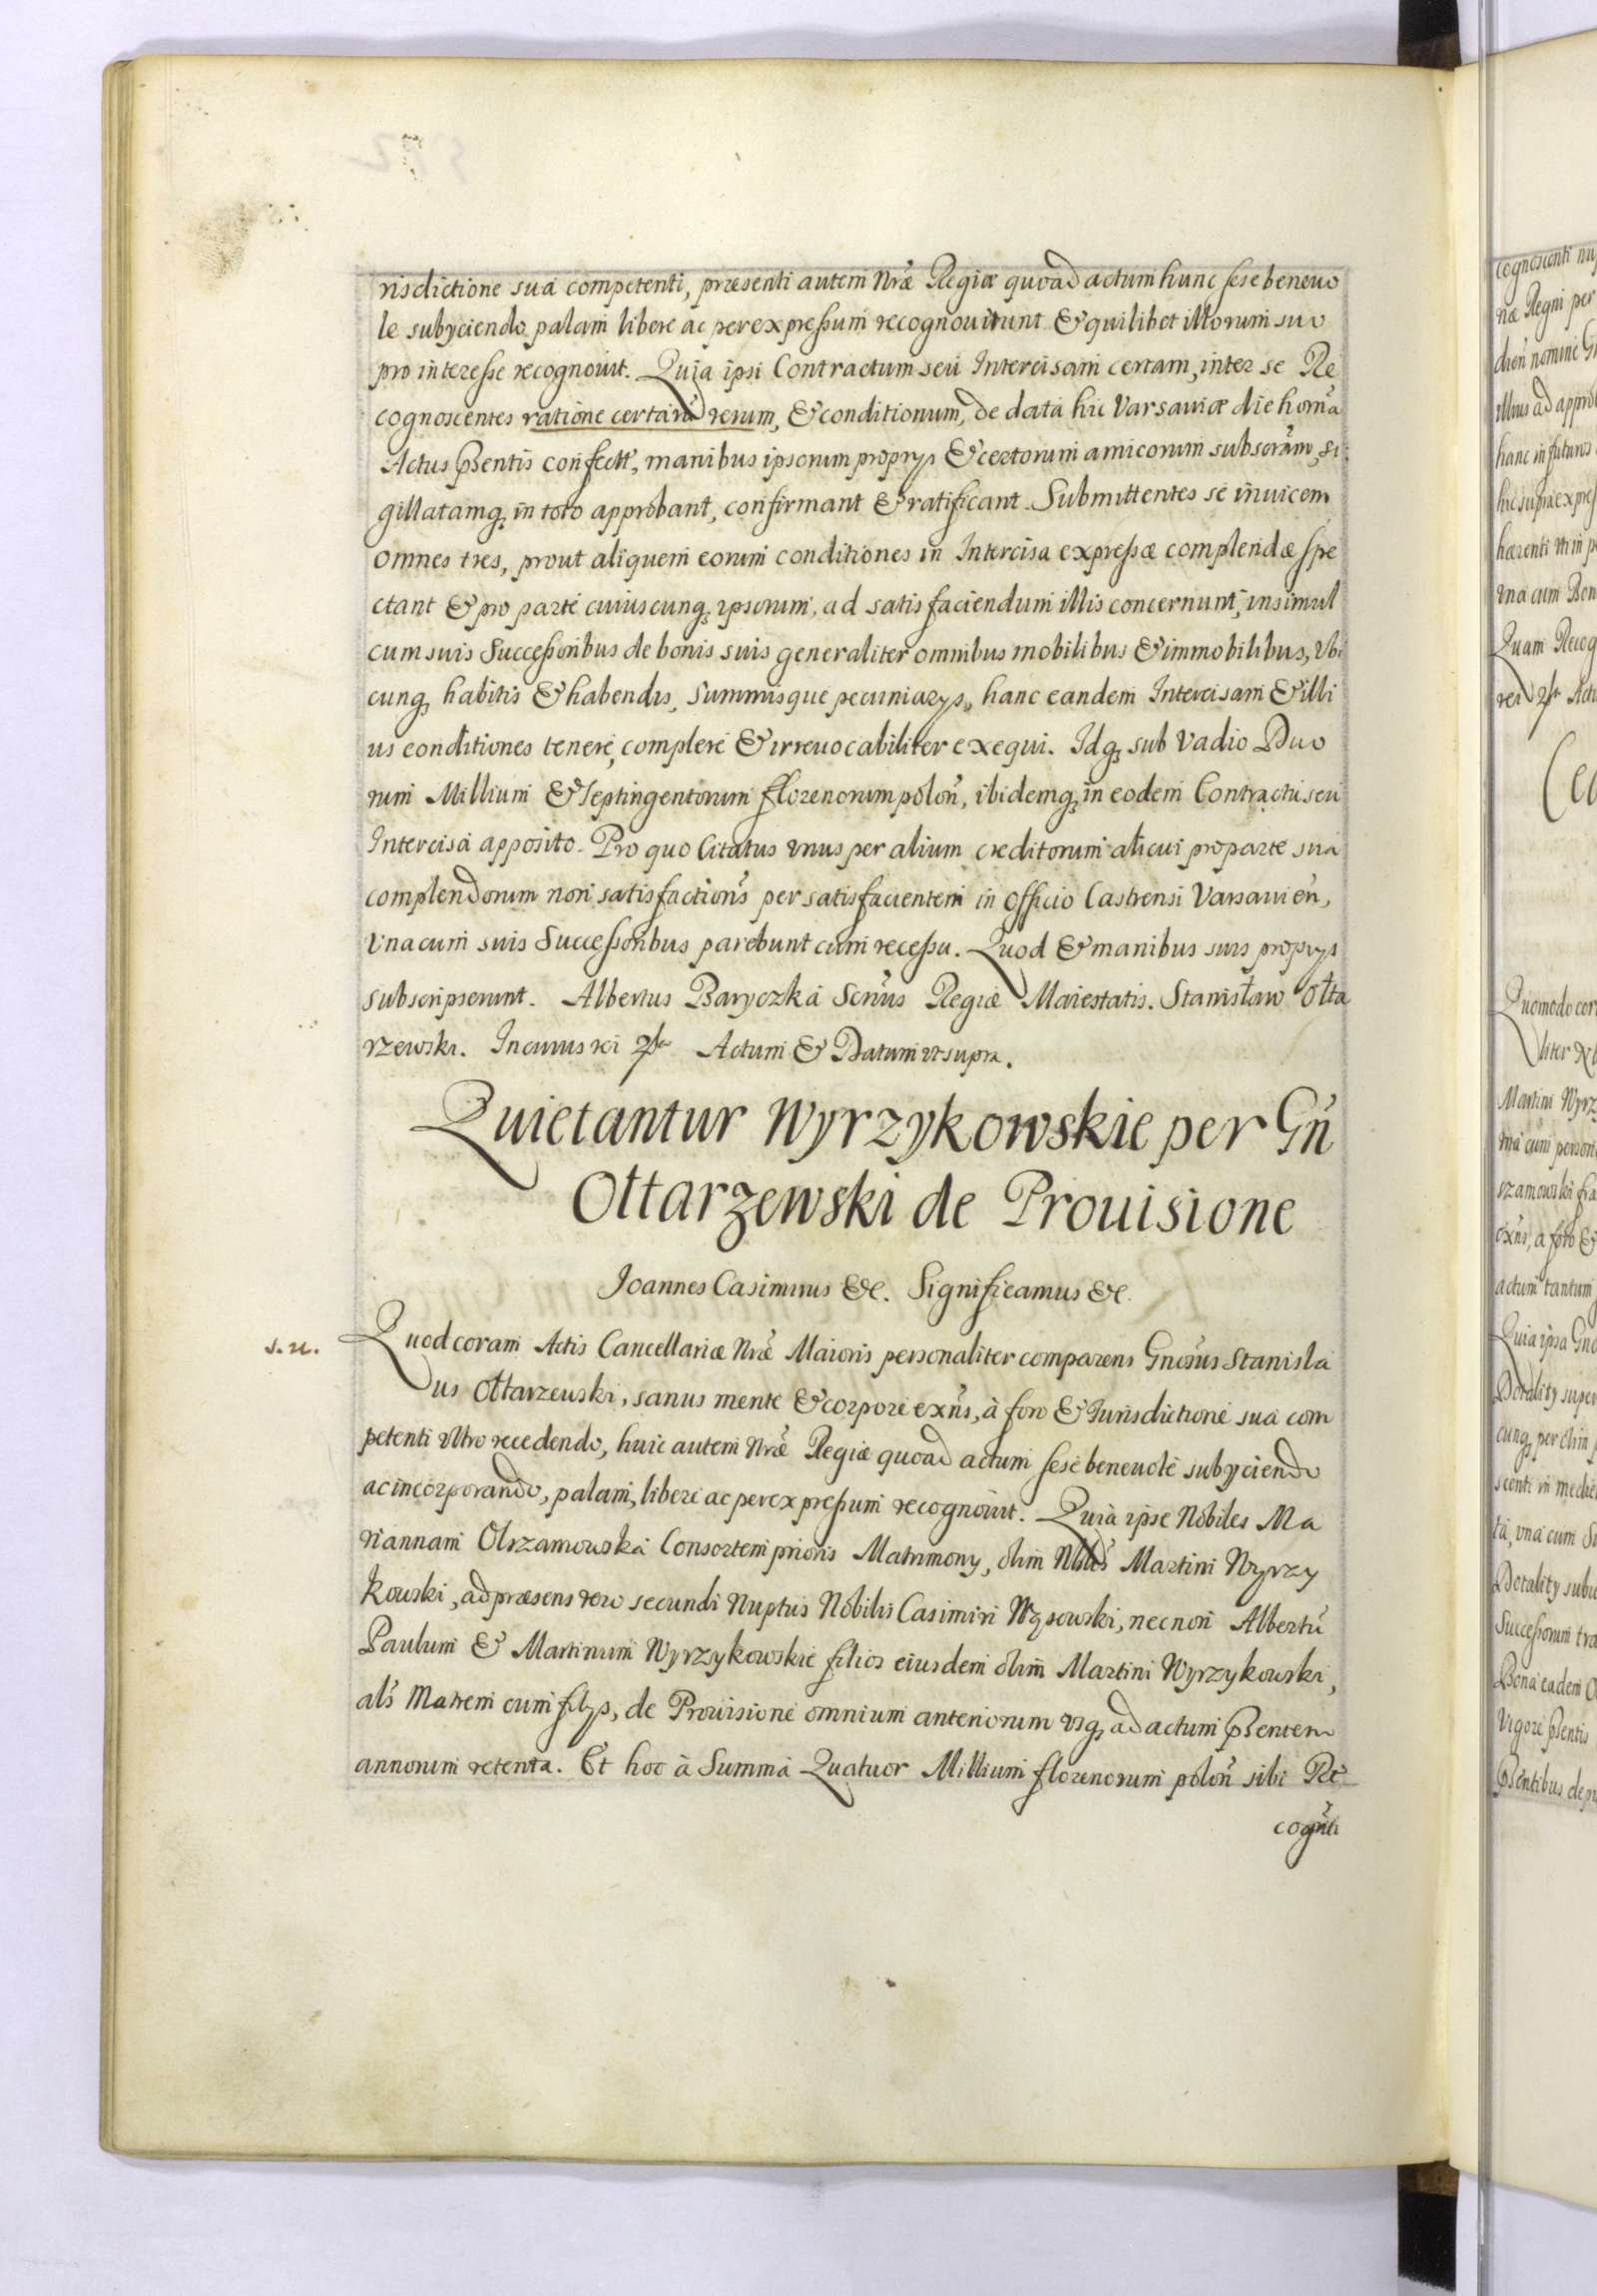 risdictione sua competenti, præsenti autem Nræ Regiæ quoad actum hunc sese beneuo
le subyciendo palam libere ac per expressum recognouerunt & quilibet illorum suo
pro interesse recognouit. Quia ipsi Contractum seu Intercisam certam, inter se Re
cognoscentes ratione certarũ rerum, & conditionum, de data hic Varsauiæ die hornã
Actus Psentis confect, manibus ipsorum proprys & certorum amicorum subscram, si
gillatamq, in toto approbant, confirmant & ratificant. Submittentes se inuicem
omnes tres, prout aliquem eorum conditiones in Intercisa expressæ complendæ spe
ctant & pro parte cuiuscunq, ipsorum, ad satisfaciendum illis concernunt, insimul
cum suis Successoribus de bonis suis generaliter omnibus mobilibus & immobilibus, Vbi
cunq, habitis & habendis, Summisque pecuniarys, hanc eandem Intercisam & illi
us conditiones tenere, complere & irreuocabiliter exequi. Idq, sub Vadio Duo
rum Millium & Septingentorum florenorum polon, ibidemq, in eodem Contractu seu
Intercisa apposito. Pro quo Citatus vnus per alium creditorum alicui pro parte sua
complendorum non satisfactions per satisfacientem in Officio Castrensi Varsauien,
Vna cum suis Successoribus parebunt cum recessu. Quod & manibus suis proprys
subscripserunt. Albertus Baryczka Scrius Regiæ Maiestatis. Stanisław Ołta
rzewski. In cuius rei Actum & Datum vt supra.
Quietantur Wyrzykowskie per Gñ
Ołtarzewski de Prouisione
Joannes Casimirus &c. Significamus &c.
S. N. Quod coram Actis Cancellariæ Nræ Maioris personaliter comparens Gnosus Stanisla
us Ołtarzewski, sanus mente & corpore exns, à foro & Iurisdictione sua com
petenti vltro recedendo, huic autem Nræ Regiæ quoad actum sese beneuole subyciendo
ac incorporando, palam, libere ac per expressum recognouit. Quia ipse Nobiles Ma
riannam Olszamowska Consortem prioris Matrimony, olim Nblis Martini Wyrzy
kowski, ad præsens vero secundi Nuptus Nobilis Casimiri Wysowski, necnon Albertũ
Paulum & Martinum Wyrzykowskie filios eiusdem olim Martini Wyrzykowski,
als Matrem cum filys, de Prouisione omnium anteriorum vsq, ad actum Psentem
annorum retenta. Et hoc à Summa Quatuor Millium florenorum polon sibi Re
cognti